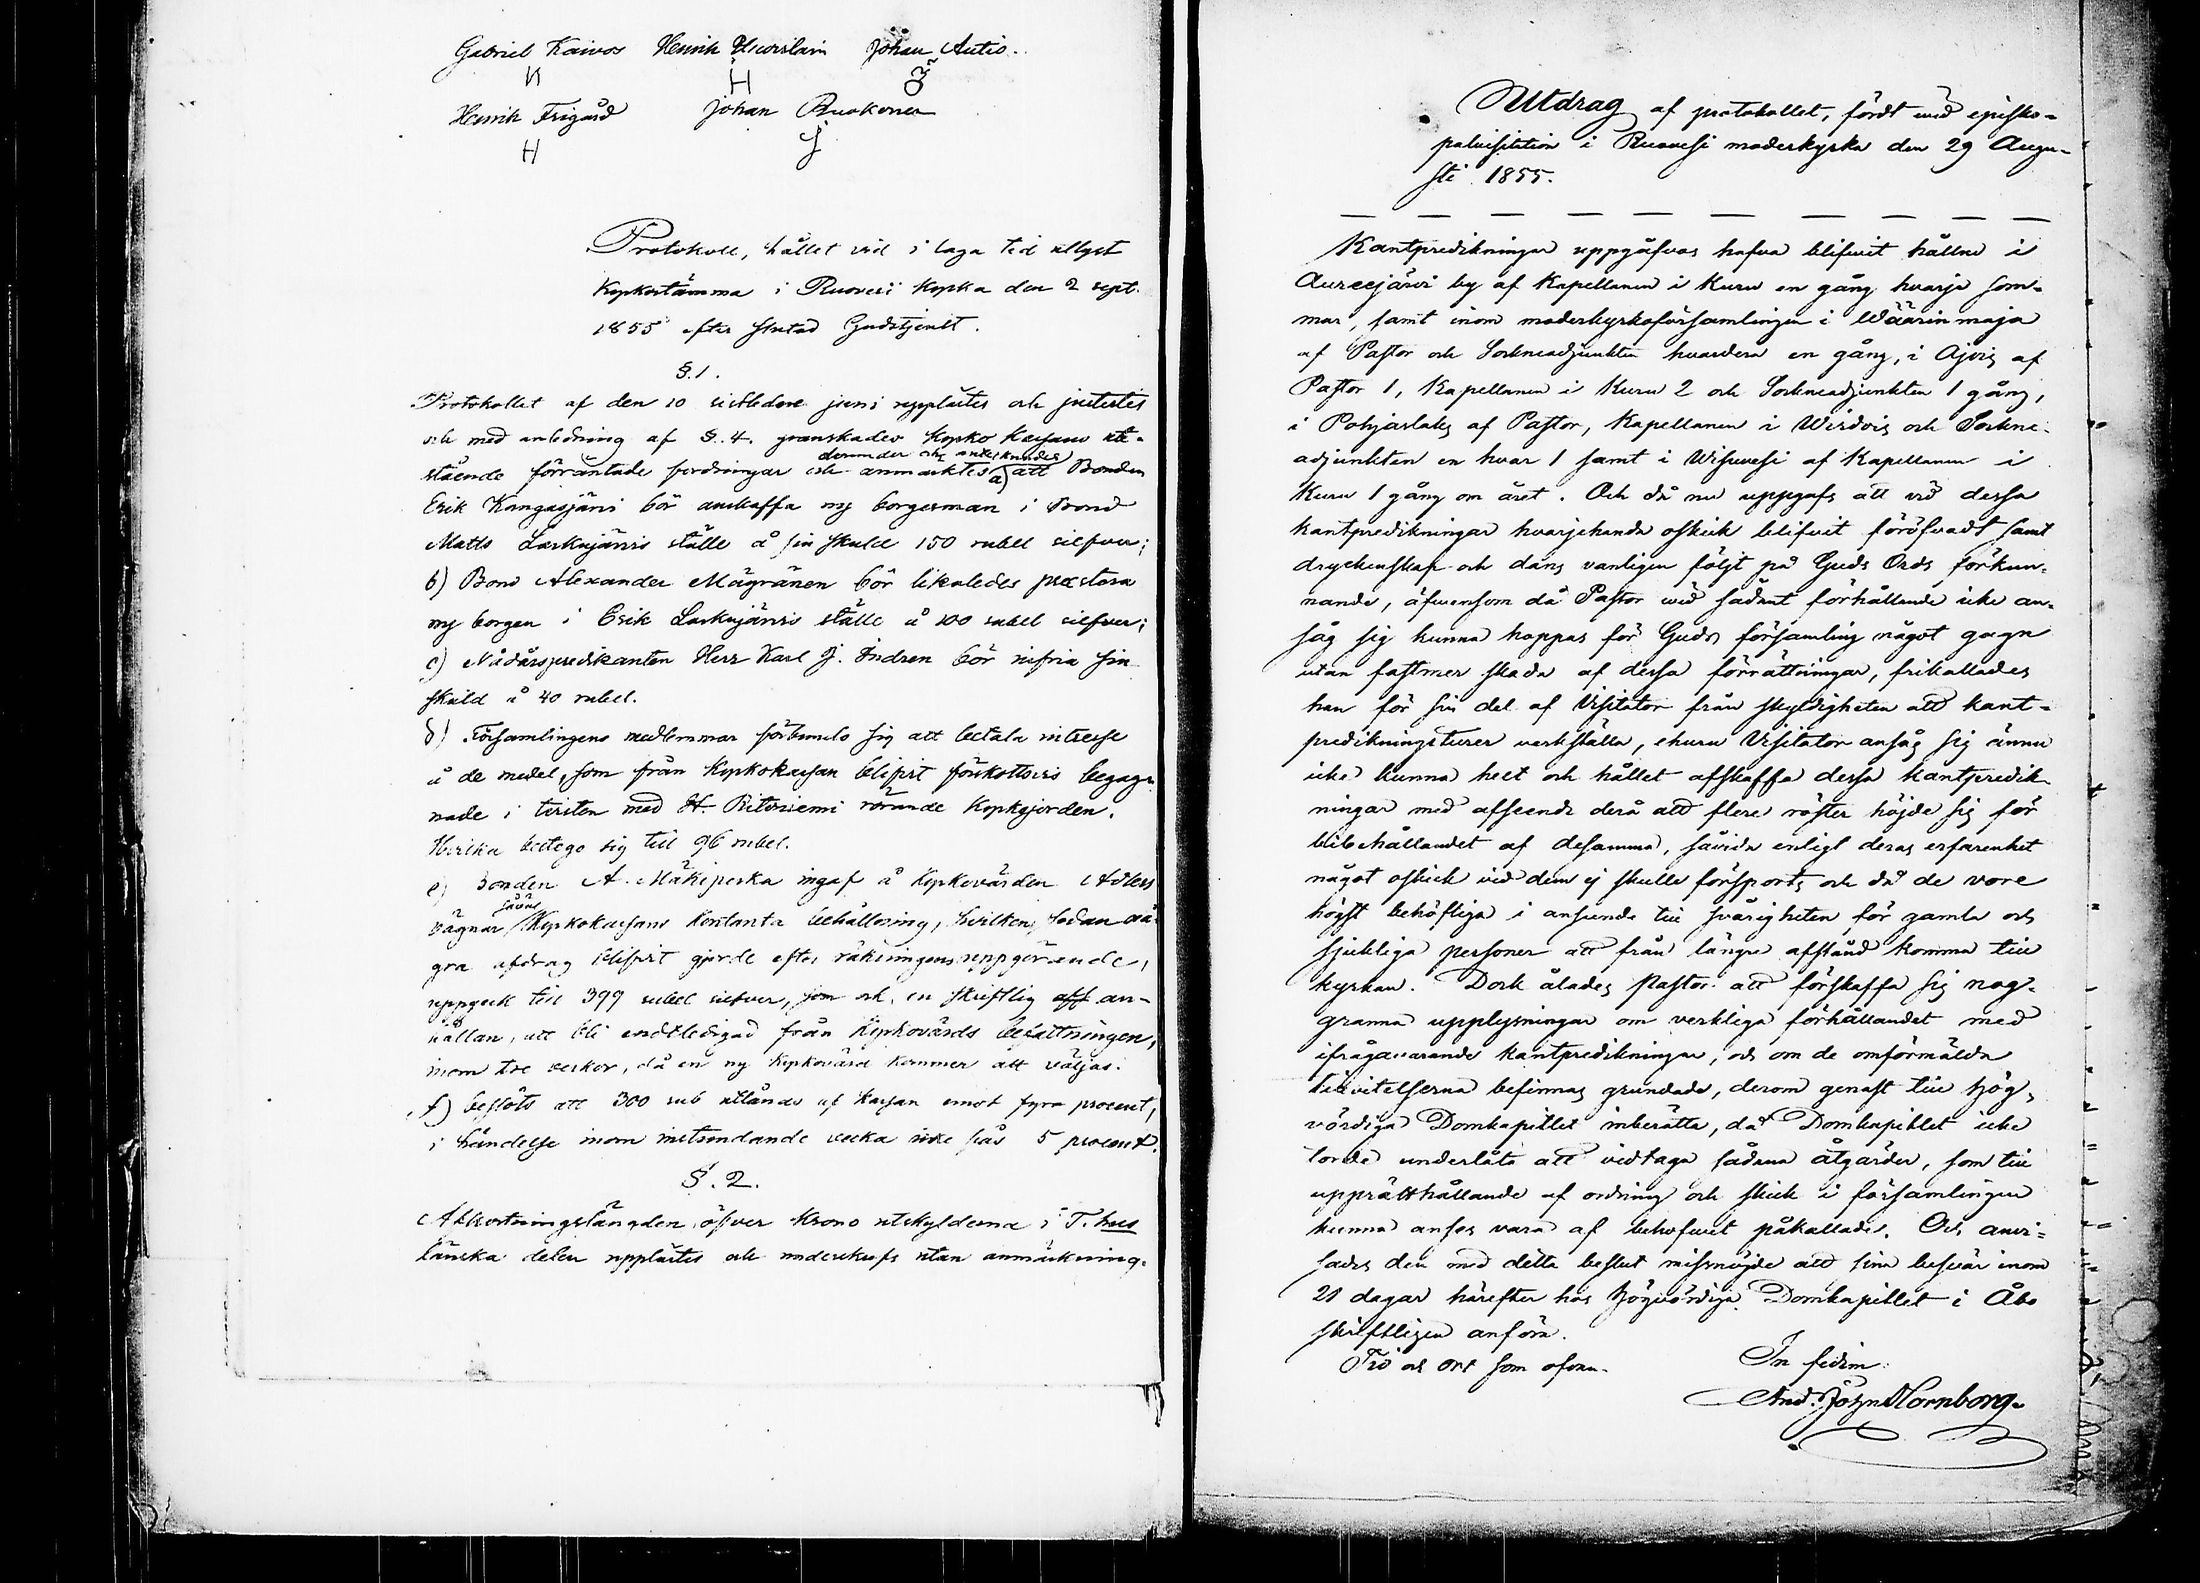 Gabriel Kaivos Henrik Hworslain Johan Autio.
H
Henrik Frigård Johan Ruokonen
H
Protokoll, hållet vid i laga tid utlyst
Kyrkostämma i Ruovesi kyrka den 2 sept.
1855 efter slutad Gudstjenst.
§.1.
Protokollet af den 10 sistledne juni upplästes och justertes
och med anledning af §.4. granskades kyrko kassans ute-
derunder och antecknades
stående förräntade fordringar och anmärktes a) att Bonden
Erik Kangasjärvi bör anskaffa ny borgesman i Bond
Matts Laskujärvis ställe å sin skuld 150 rubel silfver;
b) Bond Alexander Mägränen bör likaledes præstera
ny borgen i Erik Laskujärvis ställe å 100 rubel silfver;
c) Nådårspredikanten Herr Karl J. Indren bör infria sin
skuld å 40 rubel.
d) Församlingens medlemmar förbundo sig att betala intresse
å de medel, som från Kyrkokassan blifvit förskottsvis begag-
nade i tvisten med H. Ritoniemi rörande Kyrkojorden.
Hvilka belego sig till 96 rubel.
e) Bonden A. Mäkipeska ingaf å Kyrkovärden Adlers
såväl
vägnar Kyrkokassans kontanta behållning, hvilken, sedan nå-
gra afdrag blifvit gjorde efter räkningens uppgörande,
uppgick till 399 rubel silfver, som och en skriftlig aff an-
hållan, att bli entledigad från Kyrkovärds befattningen,
inom tre veckor, då en ny Kyrkovärd kommer att väljas.
f) beslöts att 300 rub utlånas af kassan emot fyra procent,
i händelse inom instundande vecka icke fås 5 procent.
§. 2.
Afkortningslängden öfver Krono utskylderna i T.hus
länska delen upplästes och underskrefs utan anmärkning.
Utdrag af protokollet, fördt wid episko-
palvisitation i Ruovesi moderkyrka den 29 Augu-
sti 1855.
Kantpredikningar uppgåfvos hafva blifvit hållne i
Aureejärvi by af Kapellanen i Kuru en gång hvarje som-
mar, samt inom moderkyrkoförsamlingen i Wäärinmaja
af Pastor och Sockneadjunkten hvardera en gång, i Ajvis af
Pastor 1, Kapellanen i Kuru 2 och Sockneadjunkten 1 gång,
i Pohjaslaks af Pastor, Kapellanen i Wirdois och Sockne-
adjunkten en hvar 1 samt i Wisuvesi af Kapellanen i
Kuru 1 gång om året. Och då nu uppgafs att vid dessa
kantpredikningar hvarjehanda oskick blifvit föröfvadt samt
dryckenskap och dans vanligen följt på Guds Ords förkun-
nande, äfwensom då Pastor wid sådant förhållande icke an-
såg sig kunna hoppas för Guds församling något gagn
utan fastmer skada af dessa förrättningar, frikallades
han för sin del af Visitator från skyldigheten att kant-
predikningsturer verkställa, ehuru Visitator ansåg sig ännu
icke kunna helt och hållet afskaffa dessa kantpredik-
ningar med afseende derå att flere röster höjde sig för
bibehållandet af desamma, såvida enligt deras erfarenhet
något oskick vid dem ej skulle försports och då de vore
högst behöfliga i anseende till svårigheten för gamla och
sjukliga personer att från längre afstånd komma till
kyrkan. Dock ålades Pastor att förskaffa sig nog-
granna upplysningar om verkliga förhållandet med
ifrågavarande kantpredikningar, och om de omförmälda
tillvitelserna befinnas grundade, derom genast till Hög-
vördiga Domkapitlet inberätta, då Domkapitlet icke
lorde underlåta att vidtaga sådana åtgärder, som till
upprätthållande af ordning och skick i församlingen
kunna anses vara af behofvet påkallade. Och anvi-
sades den med detta beslut missnöjde att sina besvär inom
21 dagar härefter hos Högvördiga Domkapitlet i Åbo
skriftligen anföra.
Tid och ort som ofvan.
In fidem:
And. Joh: Hornborg.